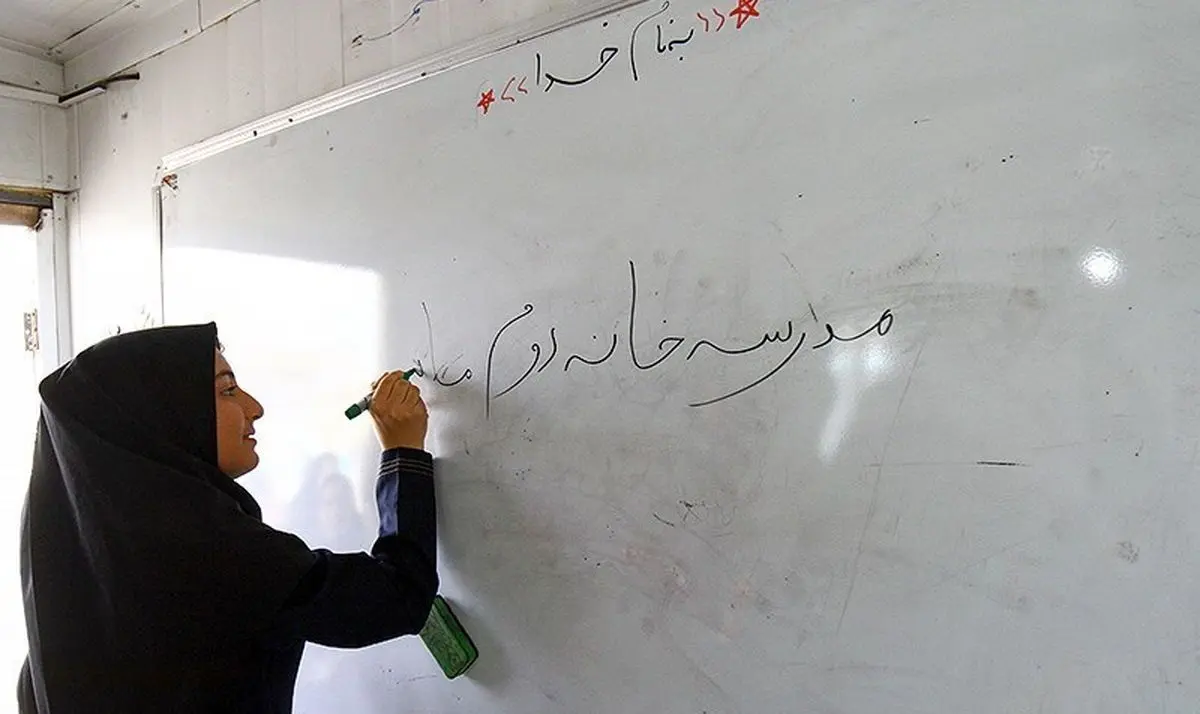 «به نام خدا»
مدرسه خانه دوم ما